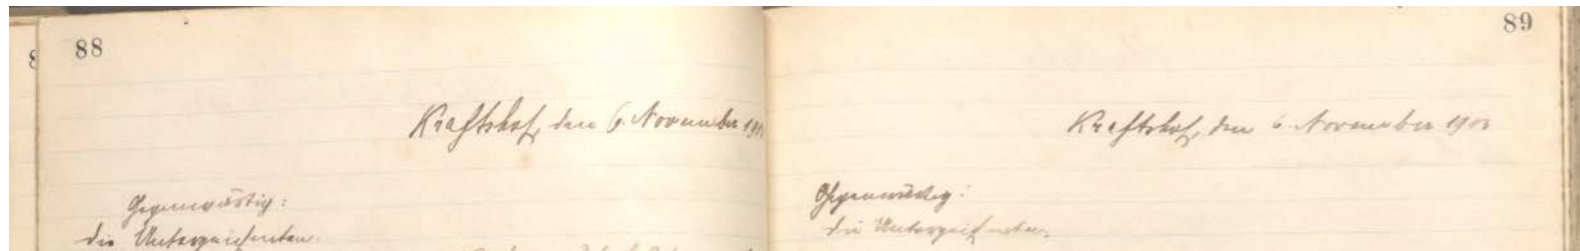 88
Kraftshof, den 6. November
Gegenwärtig:
die Unterzeichneten.
89
Kraftshof, den 6. November 1903
Gegenwärtig:
die Unterzeichneten.